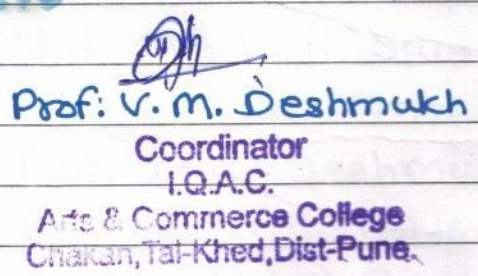 Prof: V. M. Deshmukh
Coordinator
I.Q.A.C.
Arts & Commerce College
Chakan, Tal-Khed, Dist-Pune.